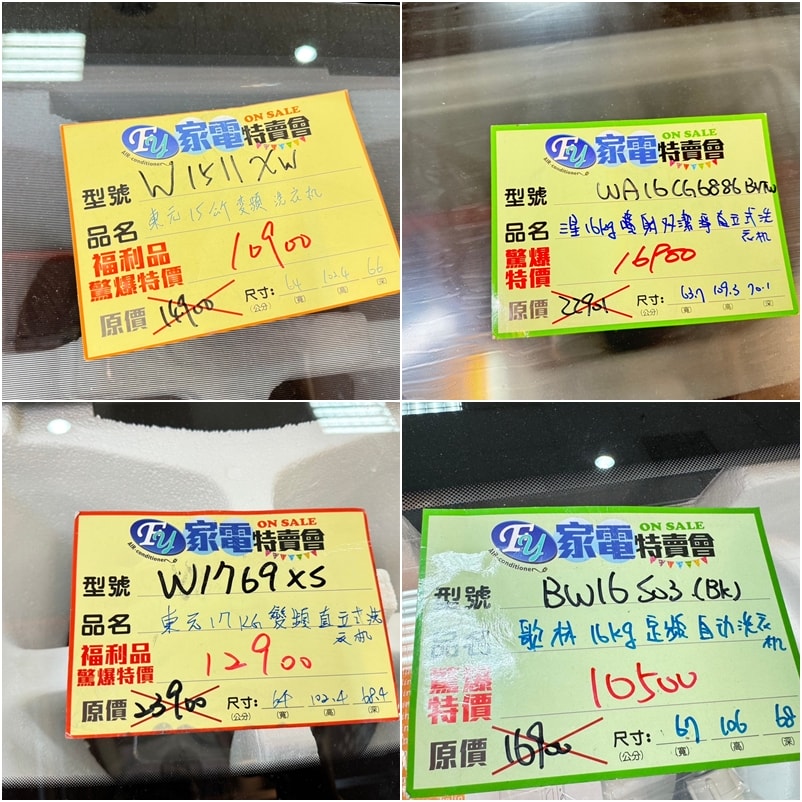 ON SALE
FY 家電特賣會
AIR-conditioner
型號 W1511XW
品名 東元15公斤变頻洗衣机
福利品
驚爆特價 10900
原價 14900 尺寸: 64 102.4 66
(公分) (寬) (高) (深)
ON SALE
FY 家電特賣會
AIR-conditioner
型號 WA16CG6886BVTW
品名 三星16kg噴射双潔淨直立式洗
衣机
驚爆
特價 16900
原價 22901 尺寸: 63.7 109.3 70.1
(公分) (寬) (高) (深)
ON SALE
FY 家電特賣會
AIR-conditioner
型號 W1769XS
品名 東元17kg變頻直立式洗
衣机
福利品
驚爆特價 12900
原價 23900 尺寸: 64 102.4 68.4
(公分) (寬) (高) (深)
ON SALE
FY 家電特賣會
AIR-conditioner
型號 BW16S03(BK)
品名 歌林16kg定頻自动洗衣
机
驚爆
特價 10500
原價 16900 尺寸: 67 106 68
(公分) (寬) (高) (深)